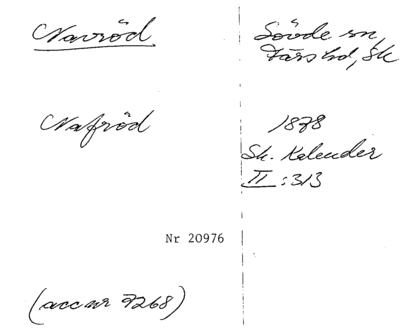 Navröd
Sövde sn,
Färs hd, Sk
Nafröd
1878
Sk. Kalender
II :313
Nr 20976
(acc nr 9268)